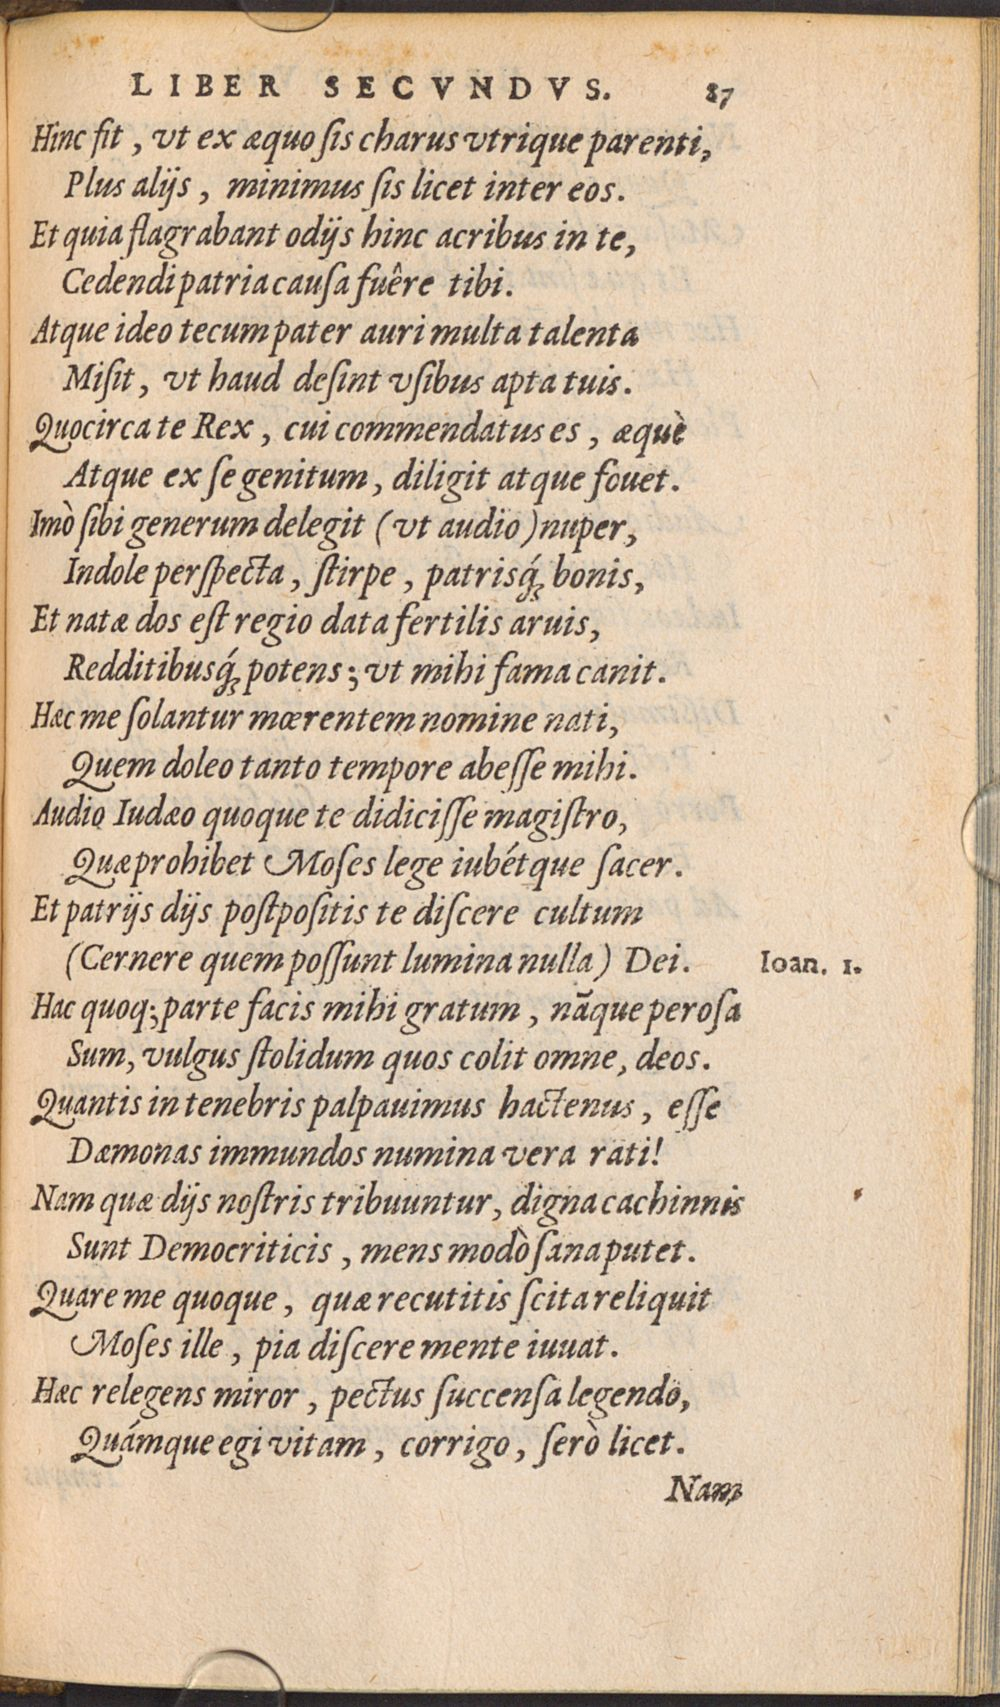 LIBER SECVNDVS. 87
Hinc fit, vt ex æquo ſis charus vtrique parenti,
Plus alijs, minimus ſis licet inter eos.
Et quia flagrabant odijs hinc acribus in te,
Cedendi patria cauſa fuêre tibi.
Atque ideo tecum pater auri multa talenta
Miſit, vt haud deſint vſibus apta tuis.
Quocirca te Rex, cui commendatus es, æquè
Atque ex ſe genitum, diligit atque fouet.
Imò ſibi generum delegit (vt audio) nuper,
Indole perſpecta, ſtirpe, patrisq́; bonis,
Et natæ dos eſt regio data fertilis aruis,
Redditibusq́; potens; vt mihi fama canit.
Hæc me ſolantur mœrentem nomine nati,
Quem doleo tanto tempore abeſſe mihi.
Audio Iudæo quoque te didiciſſe magiſtro,
Quæ prohibet Moſes lege iubétque ſacer.
Et patrijs dijs poſtpoſitis te diſcere cultum
(Cernere quem poſſunt lumina nulla) Dei. Ioan. 1.
Hac quoq; parte facis mihi gratum, nãque peroſa
Sum, vulgus ſtolidum quos colit omne, deos.
Quantis in tenebris palpauimus hactenus, eſſe
Dæmonas immundos numina vera rati!
Nam quæ dijs noſtris tribuuntur, digna cachinnis
Sunt Democriticis, mens modò ſana putet.
Quare me quoque, quæ recutitis ſcita reliquit
Moſes ille, pia diſcere mente iuuat.
Hæc relegens miror, pectus ſuccenſa legendo,
Quámque egi vitam, corrigo, ſerò licet.
Nam